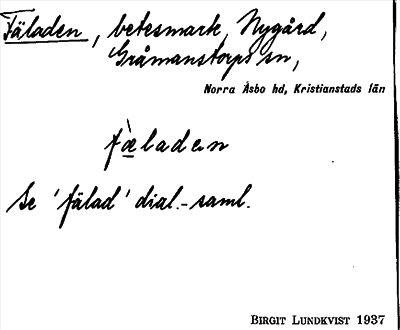 Fäladen, betesmark, Nygård,
Gråmanstorps sn,
Norra Åsbo hd, Kristianstads län
fæ̀laden
Se 'fälad' dial.-saml.
BIRGIT LUNDKVIST 1937